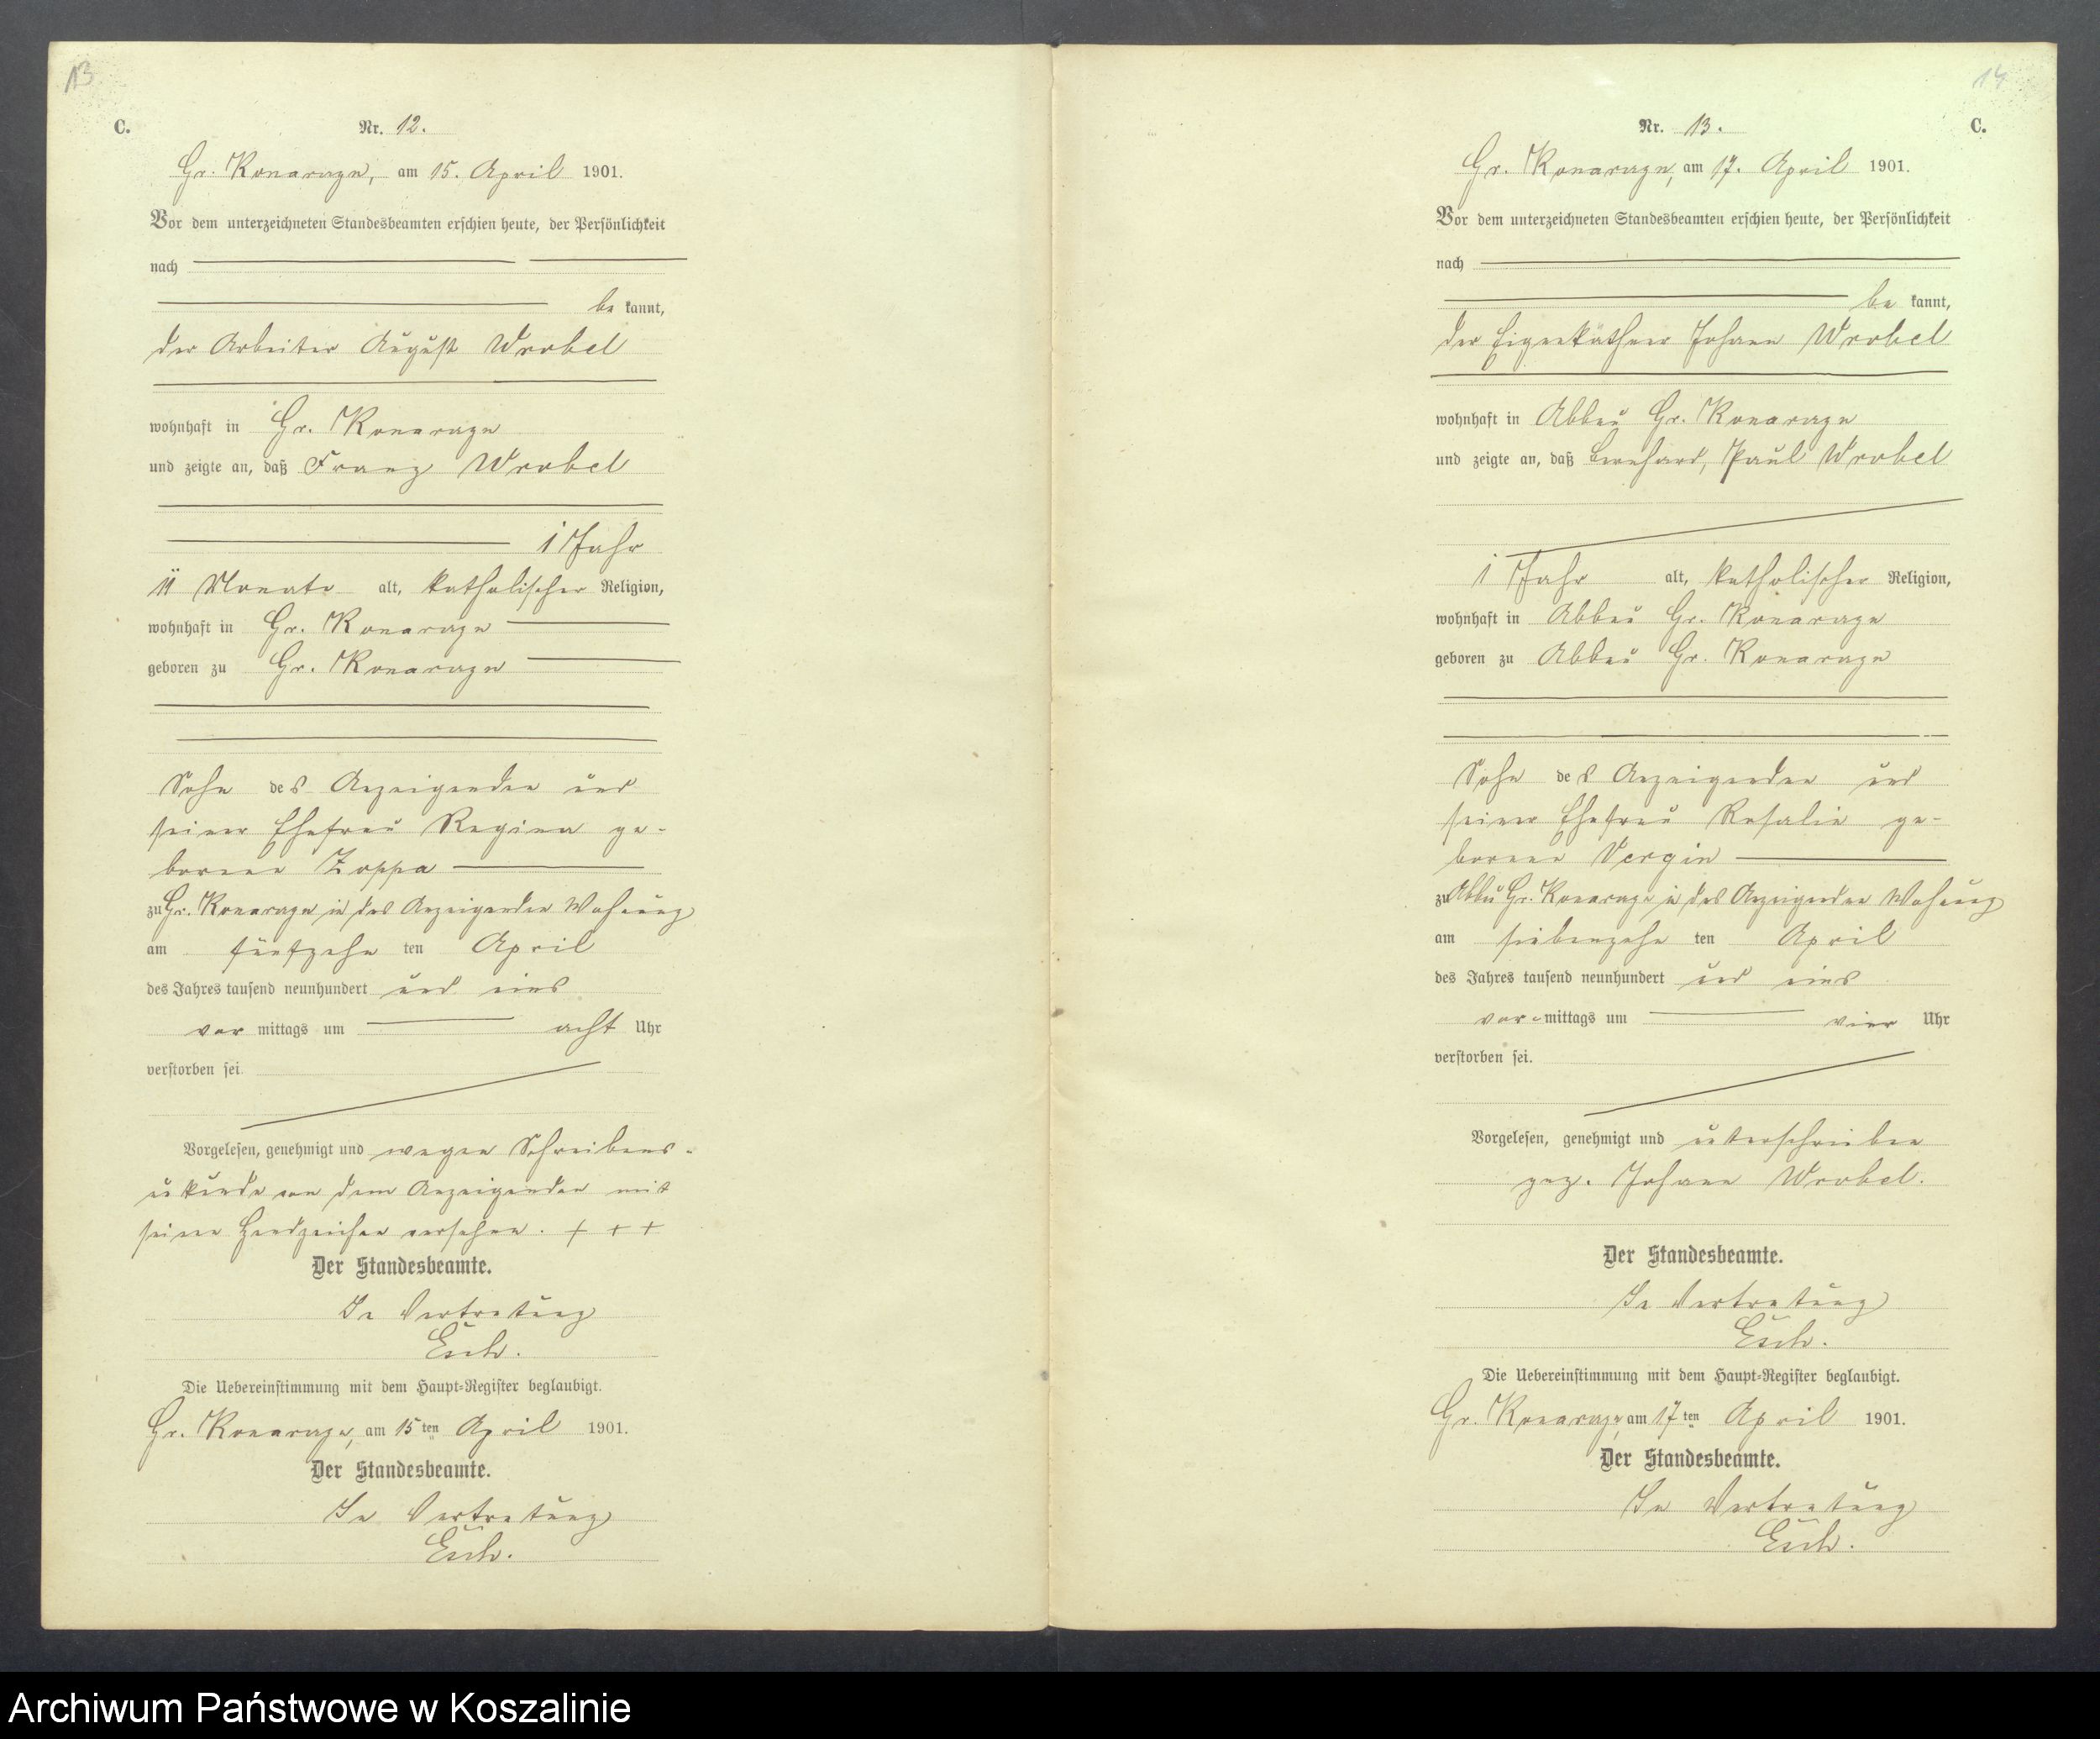 13
C.
Nr. 12.
Gr. Konarzyn, am 15. April 1901.
Vor dem unterzeichneten Standesbeamten erschien heute, der Persönlichkeit
nach
be kannt,
der Arbeiter August Wrobel
wohnhaft in Gr. Konarzyn
und zeigte an, daß Franz Wrobel
1 Jahr
11 Monate alt, katholischer Religion,
wohnhaft in Gr. Konarzyn
geboren zu Gr. Konarzyn
Sohn des Anzeigenden und
seiner Ehefrau Regina ge-
borene Zoppa
zu Gr. Konarzyn in des Anzeigenden Wohnung
am fünfzehn ten April
des Jahres tausend neunhundert und eins
vor mittags um acht Uhr
verstorben sei.
Vorgelesen, genehmigt und wegen Schreibens-
unkunde von dem Anzeigenden mit
seinen Handzeichen versehen. + + +
Der Standesbeamte.
In Vertretung
Die Uebereinstimmung mit dem Haupt-Register beglaubigt.
Gr. Konarzyn, am 15ten April 1901.
Der Standesbeamte.
In Vertretung
14
Nr. 13.
C.
Gr. Konarzyn, am 17. April 1901.
Vor dem unterzeichneten Standesbeamten erschien heute, der Persönlichkeit
nach
be kannt,
der Eigenkäthner Johann Wrobel
wohnhaft in Abbau Gr. Konarzyn
und zeigte an, daß Bernhard, Paul Wrobel
1 Jahr alt, katholischer Religion,
wohnhaft in Abbau Gr. Konarzyn
geboren zu Abbau Gr. Konarzyn
Sohn des Anzeigenden und
seiner Ehefrau Rosalie ge-
borene Vergin
zu Abbau Gr. Konarzyn in des Anzeigenden Wohnung
am siebenzehn ten April
des Jahres tausend neunhundert und eins
vor mittags um vier Uhr
verstorben sei.
Vorgelesen, genehmigt und unterschrieben
gez. Johann Wrobel.
Der Standesbeamte.
In Vertretung
Die Uebereinstimmung mit dem Haupt-Register beglaubigt.
Gr. Konarzyn, am 17ten April 1901.
Der Standesbeamte.
In Vertretung
Archiwum Państwowe w Koszalinie